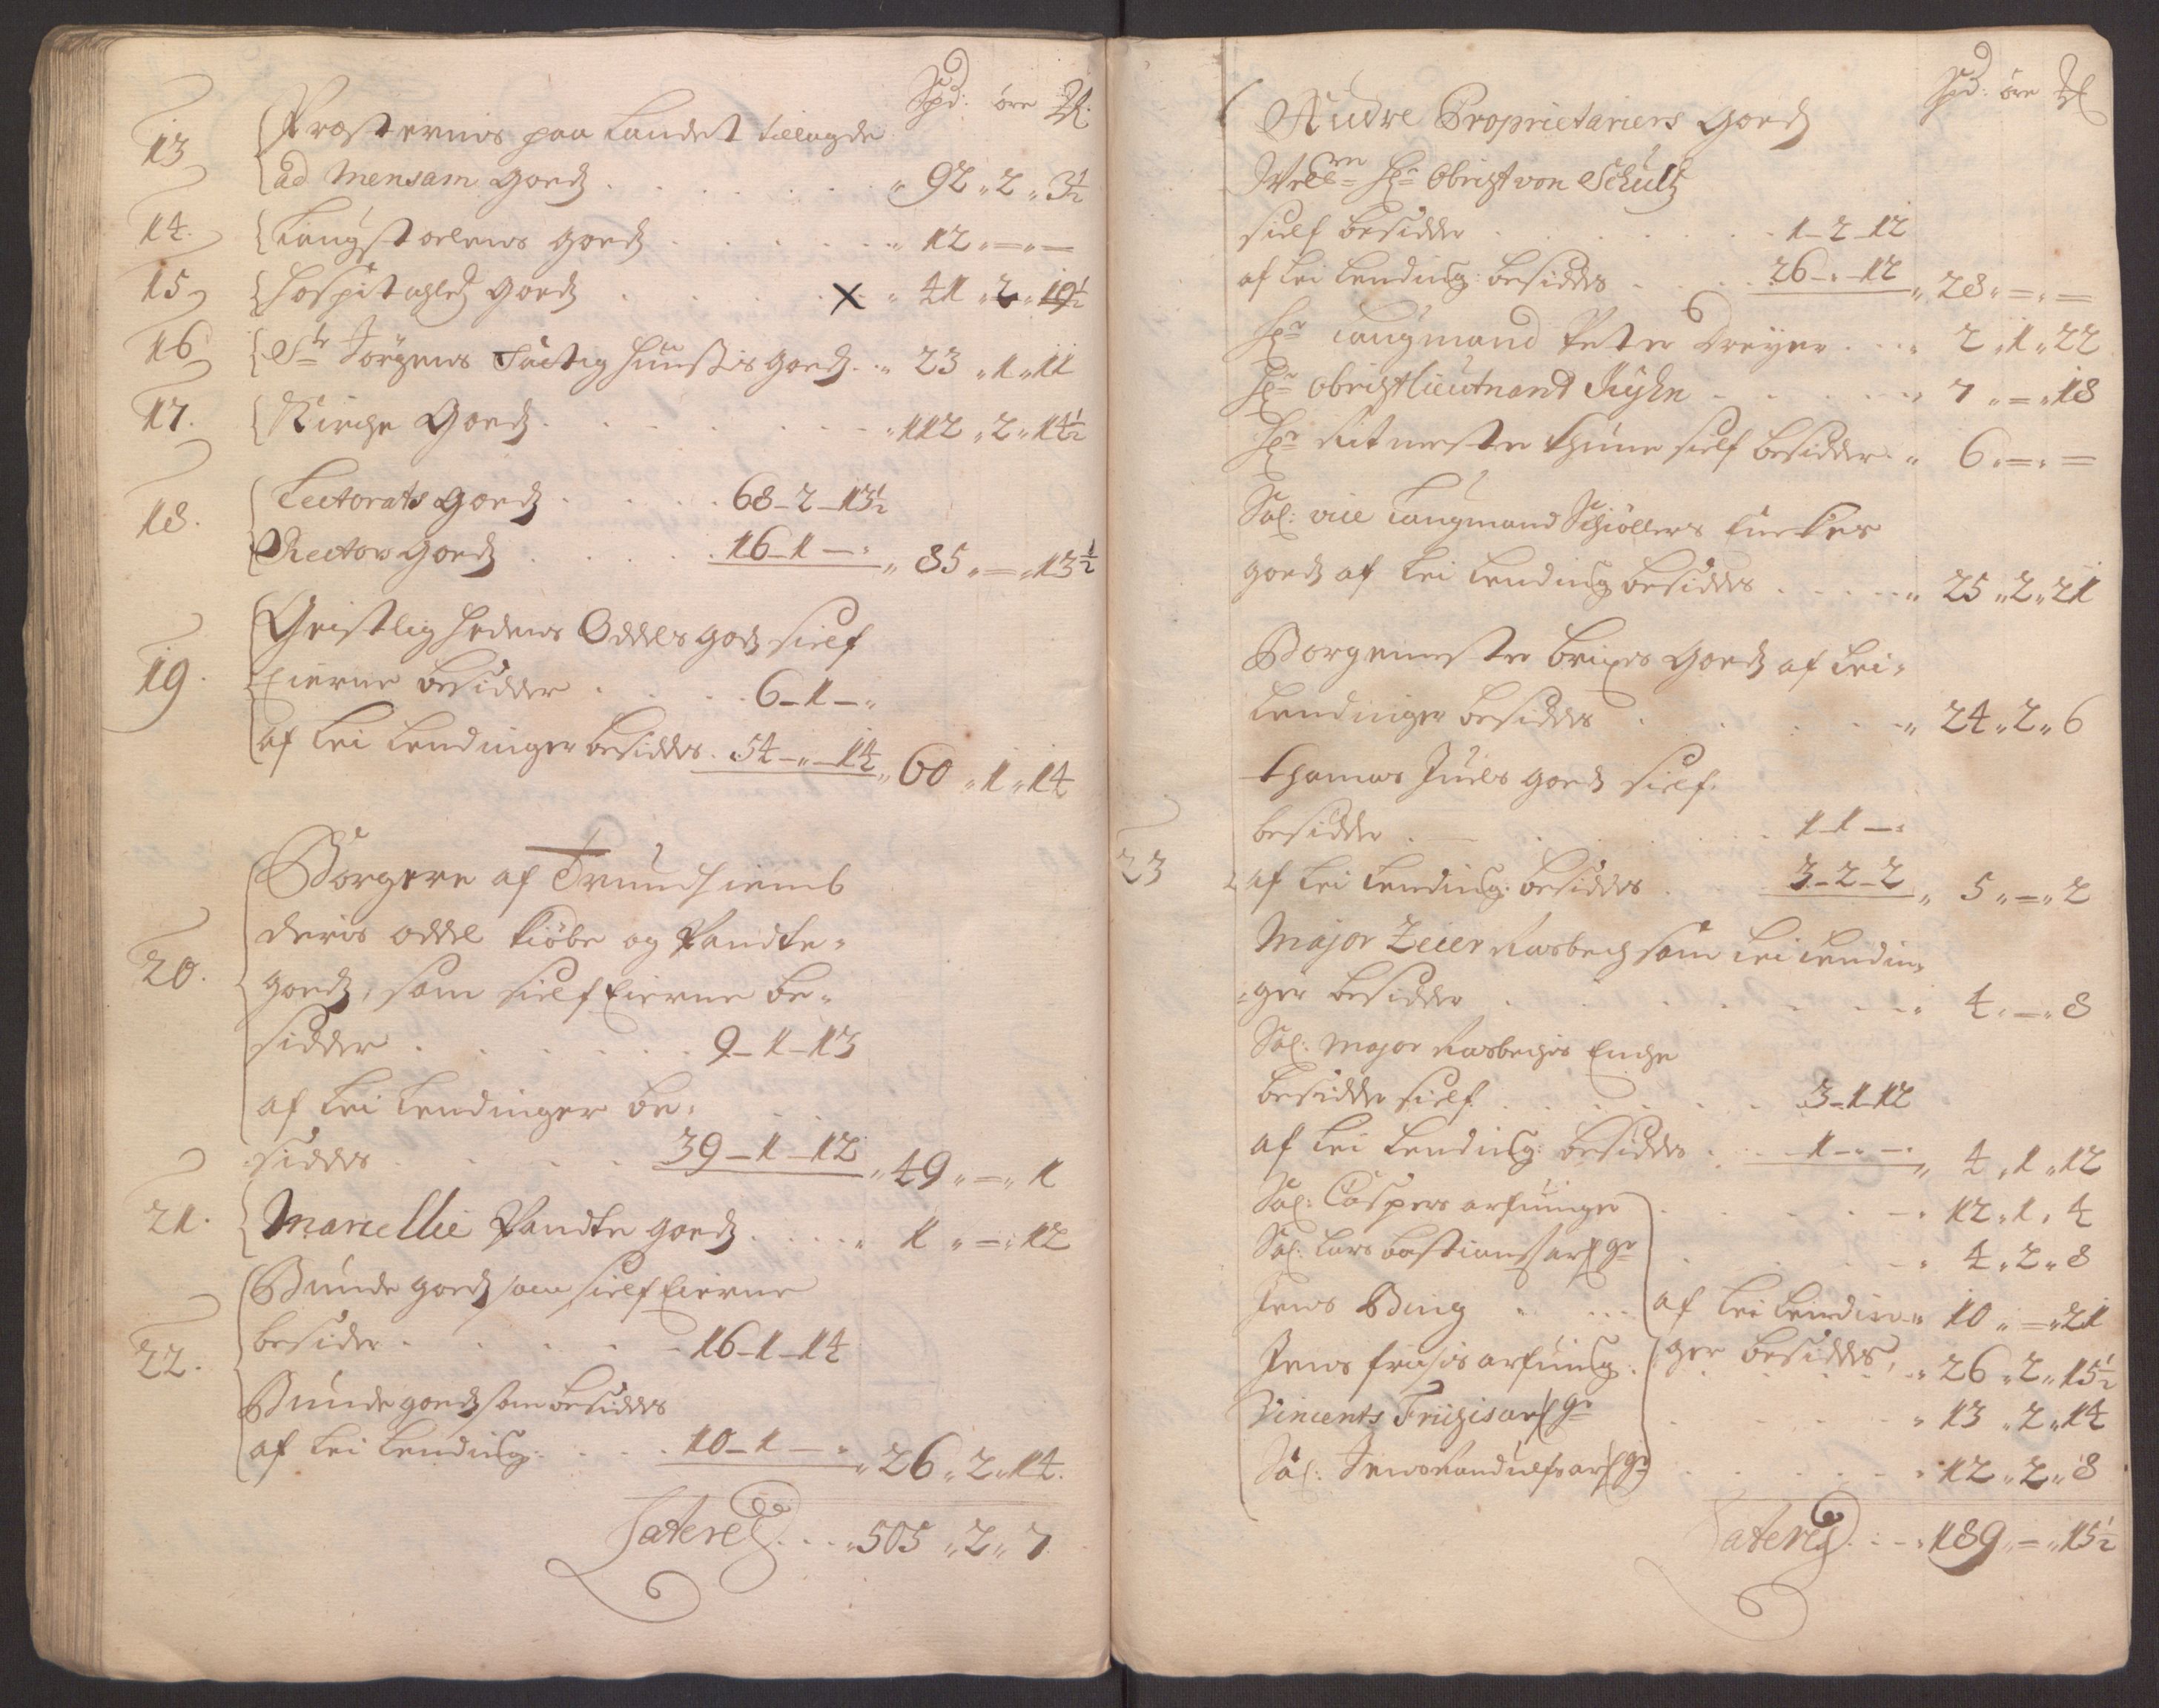 Spd: öre ℔:
13 Præsternis paa Landet tillagde
ad Mensam Goedz . . . . . . " 92 " 2 " 3½
14. Laugstoelens Goedz . . . . . . " 12 " = " =
15 Hospitalets Goedz . . . . × " 41 " 2 " 19½
16 St Jörgens Fattig Huusis Goedz . . " 23 " 1 " 11
17. Kirche Goedz . . . . . . " 112 " 2 " 14½
18. Lectorats Goedz . . . . 68 - 2 - 13½
Rectors Goedz . . . . 16 - 1 - " " 85 " = " 13½
Geistlighedens Oddels Godz sielf
19. Eierne besidder . . . . 6 - 1 - "
af Leilendinger besiddes . 54 - " - 14 " 60 " 1 " 14
Borgere af Trundhiemb
deris oddel kiöbe og Pandte-
20. goedz, som sielf Eierne be-
sidder . . . . . . 9 - 1 - 13
af Leilendinger be-
siddes . . . . 39 - 1 - 12 " 49 " = " 1
21. Marcellie Pandte goedz . . . . " 1 " = " 12
Bunde goedz som sielf Eierne
22. besider . . . . . 16 - 1 - 14
Bunde goedz som besiddes
af Leilending: . . . 10 - 1 - " " 26 " 2 " 14.
Lateris . . . " 505 " 2 " 7
Spd: öre ℔
Andre Proprietariers Goedz
Welbrn Hr Obrist von Schultz
sielf besidder . . . . . . 1 - 2 - 12
af Leilending: besiddes . . . 26 - " - 12 " 28 " = " =
Hr Laugmand Peter Dreyer . . . " 2 " 1 " 22
Hr Obristlieutnant . . . . . " 7 " = " 18
Hr Ritmester sielf besidder . " 6 " = " =
Sal: vice Laugmand Schiöllers Enckes
goedz af Leilending besiddes . . . . . " 25 " 2 " 21
Borgemester Brixes Goedz af Lei-
lendinger besiddes . . . . . " 24 " 2 " 6
Thomas Juels goedz sielf
besidder . . . . . . . 1 - 1 - "
23 af Leilending: besiddes . . 3 - 2 - 2 " 5 " = " 2
Major Zeier som Leilendin-
ger besidder . . . . . . . " 4 " = " 8
Sal: Major Encke
besidder sielf . . . . . . 3 - 1 - 12
af Leilending: besiddes . . 1 - " - " " 4 " 1 " 12
Sal: Caspers arfuinger . . . . . " 12 " 1 " 4
Sal: Lars Bastians arfgr . . . . . " 4 " 2 " 8
Jens Bing " . . . af Leilendin- " 10 " = " 21
Jens arfuing: ger besiddes, . . " 26 " 2 " 15½
Vincents arfgr . . . . . " 13 " 2 " 14
Sal: Jens Randulfs arfgr . . . . . " 12 " 2 " 8
Lateris . . . " 189 " = " 15½